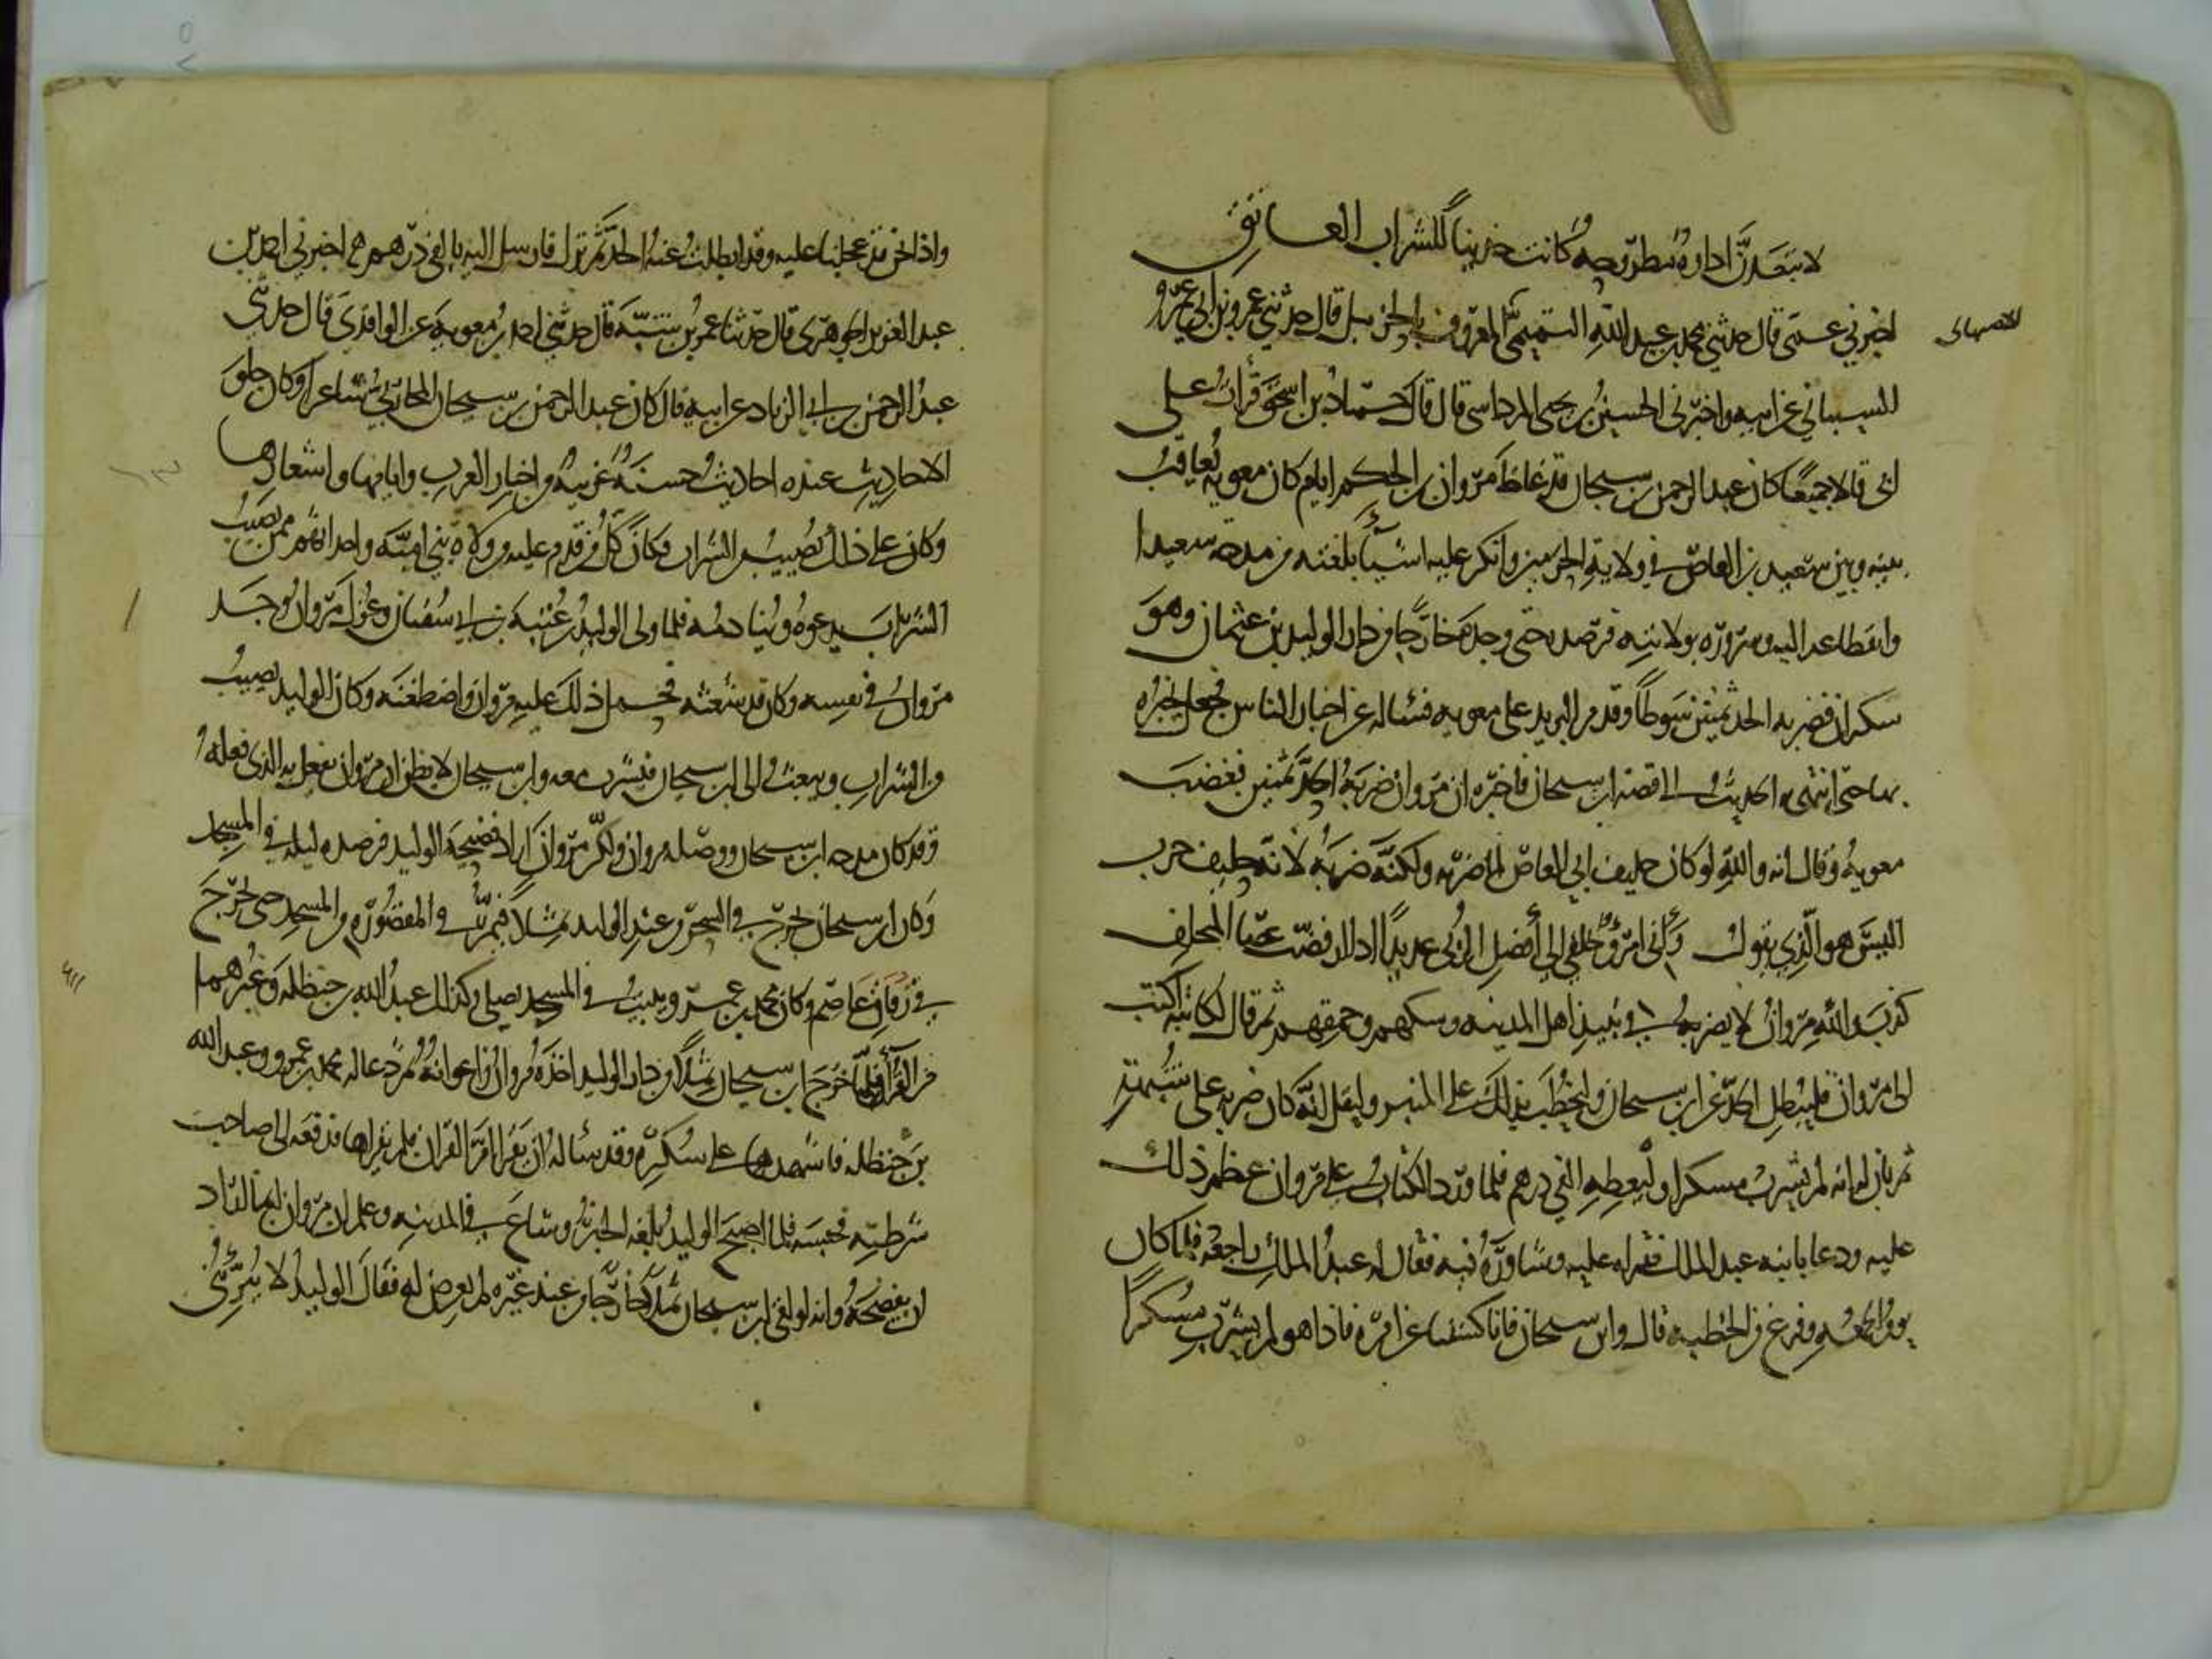 لا تبعدن اداوة مطروحة كانت حديثا للشراب العاتق
اخبرني عمى قال حدثني محمد بن عبد الله التميمي المعروف بالحزنبل قال حدثني عمرو بن ابي عمرو
الاصبهاني
الشيباني عن ابيه واخبرني الحسين بن يحيى المرداسي قال قال حماد بن اسحق قرات على
ابي قالا جميعا كان عبد الرحمن بن سيحان قد غاظ مروان بن الحكم ايام كان معوية يعاقب
بينه وبين سعيد بن العاص في ولاية الحرمين وانكر عليه اشيأ بلغته من مدحه سعيدا
وانقطاعه اليه وسروره بولايته فرصده حتى وجده خارجا من دار الوليد بن عثمان وهو
سكران فضربه الحد ثمنين سوطا وقدم البريد على معويه فسأله عن اخبار الناس فجعل يخبره
بها حتى انتهى به الحديث الى قصة ابن سيحان فاخبره ان مروان ضربه الحد ثمنين فغضب
معوية وقال انه والله لو كان حليف ابي العاص لما ضربه ولكنه ضربه لانه حليف حرب
اليس هو الذي يقول واني امرؤ حلفي الى أفضل الربى عديدا اذا ارفضت عصا المتحلف
كذب والله مروان لا يضربه في نبيذ اهل المدينه وسكهم وحمقهم ثم قال لكاتبه اكتب
الى مروان فليبطل الحد عن ابن سيحان وليخطب بذلك على المنبر وليقل انه كان ضربه على شبهة
ثم بان له انه لم يشرب مسكرا وليعطه الفي درهم فلما ورد الكتاب على مروان عظم ذلك
عليه ودعا بابنه عبد الملك فقراه عليه وشاوره فيه فقال له عبد الملك راجعه فلما كان
يوم الجمعه وفرغ من الخطبه قال وابن سيحان فانا كشفنا عن امره فاذا هو لم يشرب مسكرا
واذا نحن قد عجلنا عليه وقد ابطلت عنه الحد ثم نزل فارسل اليه بالفي درهم اخبرني احمد بن
عبد العزيز الجوهري قال حدثنا عمر بن شبة قال حدثني احمد بن معوية عن الواقدى قال حدثني
عبد الرحمن بن ابي الزناد عن ابيه قال كان عبد الرحمن بن سيحان المحاربي شاعرا وكان حلو
الاحاديث عنده احاديث حسنة غريبة من اخبار العرب وايامها واشعارها
وكان على ذلك يصيب من الشراب فكان كل من قدم عليه من ولاة بني امية واحداثهم ممن يصيب
الشراب يدعوه وينادمه فلما ولي الوليد بن عتبة بن ابي سفيان وعزل مروان وجد
مروان في نفسه وكان قد شعثه فحمل ذلك عليه مروان واضطغنه وكان الوليد يصيب
من الشراب ويبعث الى ابن سيحان فيشرب معه وابن سيحان لا يظن ان مروان يفعل به الذي فعله
وقد كان مدحه ابن سيحان ووصله مروان ولكن مروان اراد فضيحة الوليد فرصده ليلة في المسجد
وكان ابن سيحان يخرج في السحر من عند الوليد ثملا فيمر في المقصورة من المسجد حتى يخرج
في زقاق عاصم وكان محمد بن عمرو يبيت في المسجد يصلي وكذلك عبد الله بن حنظلة وغيرهما
من القرأ فلما خرج ابن سيحان ثملا من دار الوليد اخذه مروان واعوانه ثم دعا له محمد بن عمرو وعبد الله
بن حنظله فاشهدهما على سكره وقد سأله ان يقرا ام القران فلم يقراها فدفعه الى صاحب
شرطته فحبسه فلما اصبح الوليد بلغه الخبر وشاع في المدينه وعلم ان مروان انما اراد
ان يفضحه وانه لو لقي ابن سيحان ثملا خارجا من عند غيره لم يعرض له فقال الوليد لا يبرئني